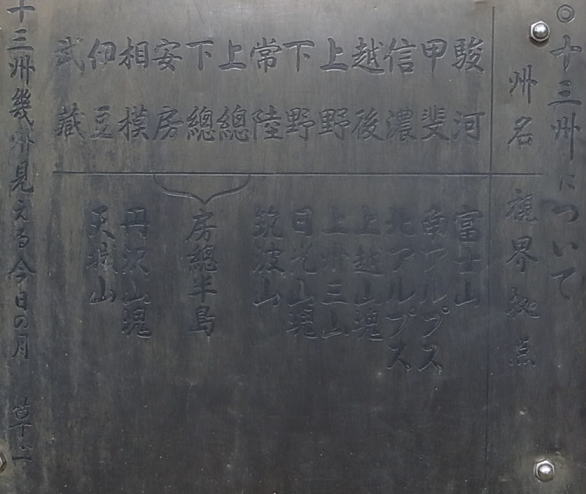 ◎十三州について
州名 視界拠点
駿河 富士山
甲斐 南アルプス
信濃 北アルプス
越後 上越山塊
上野 上州三山
下野 日光山塊
常陸 筑波山
上總
下總 房總半島
安房
相模 丹沢山塊
伊豆 天城山
武蔵
十三州幾州見える今日の月